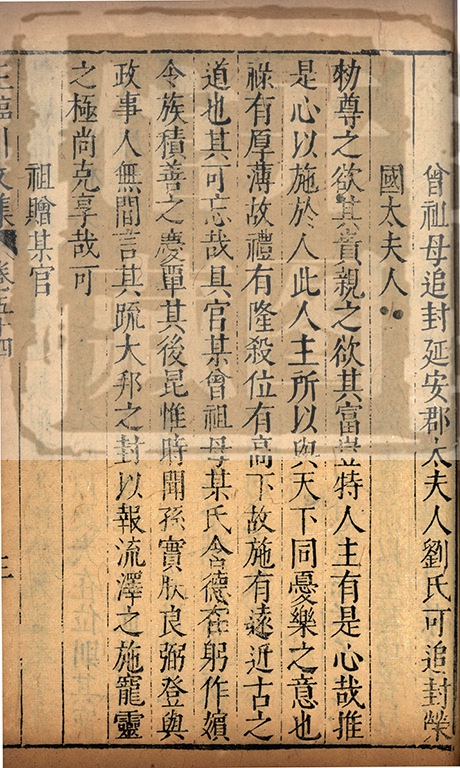 曾祖母追封延安郡太夫人劉氏可追封榮
國太夫人
勑尊之欲其貴親之欲其富豈特人主有是心哉推
是心以施於人此人主所以與天下同憂樂之意也
祿有厚薄故禮有隆殺位有高下故施有遠近古之
道也其可忘哉具官某曾祖母某氏含德在躬作嬪
令族積善之慶覃其後昆惟時聞孫實朕良弼登與
政事人無間言其疏大邦之封以報流澤之施寵靈
之極尚克享哉可
祖贈某官
王臨川文集 卷五十四